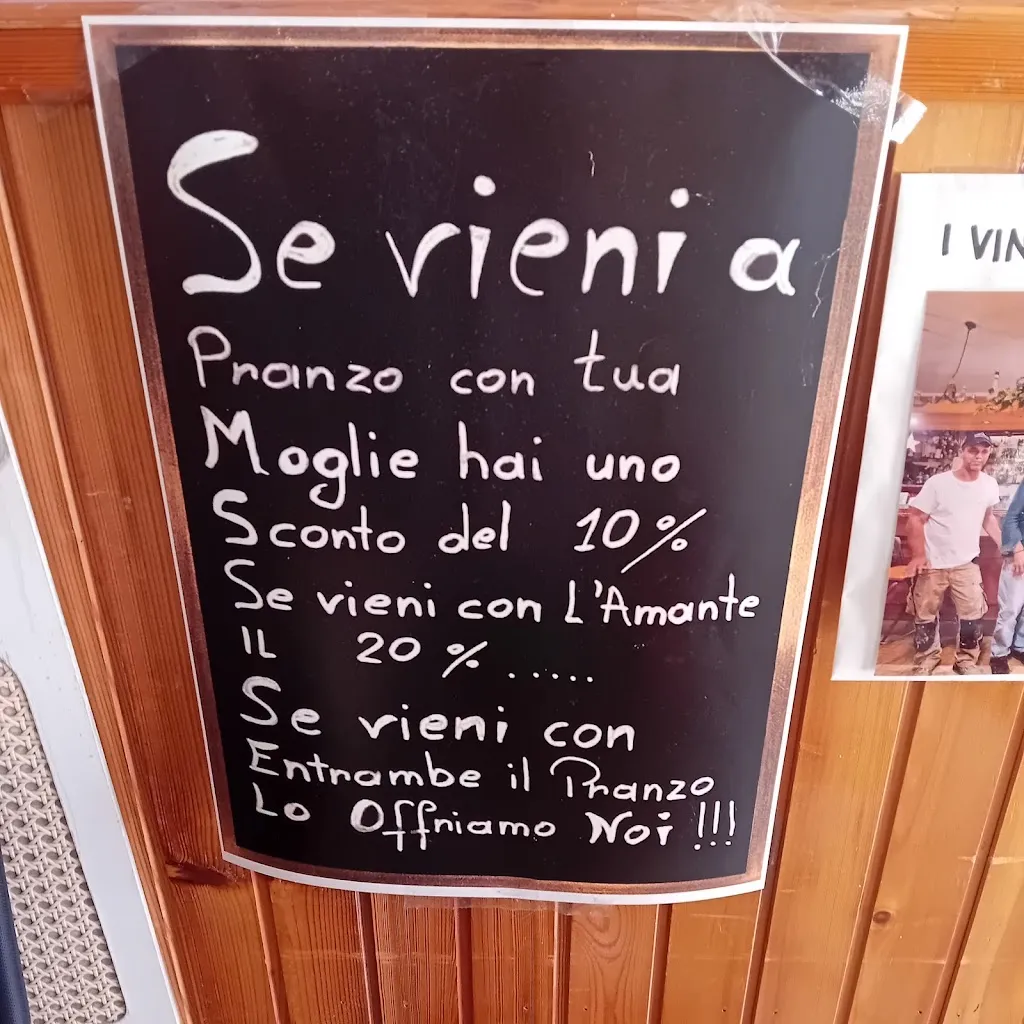 Se vieni a
Pranzo con tua
Moglie hai uno
Sconto del 10%
Se vieni con L'Amante
IL 20% .....
Se vieni con
Entrambe il Pranzo
Lo Offriamo Noi !!!
I VIN